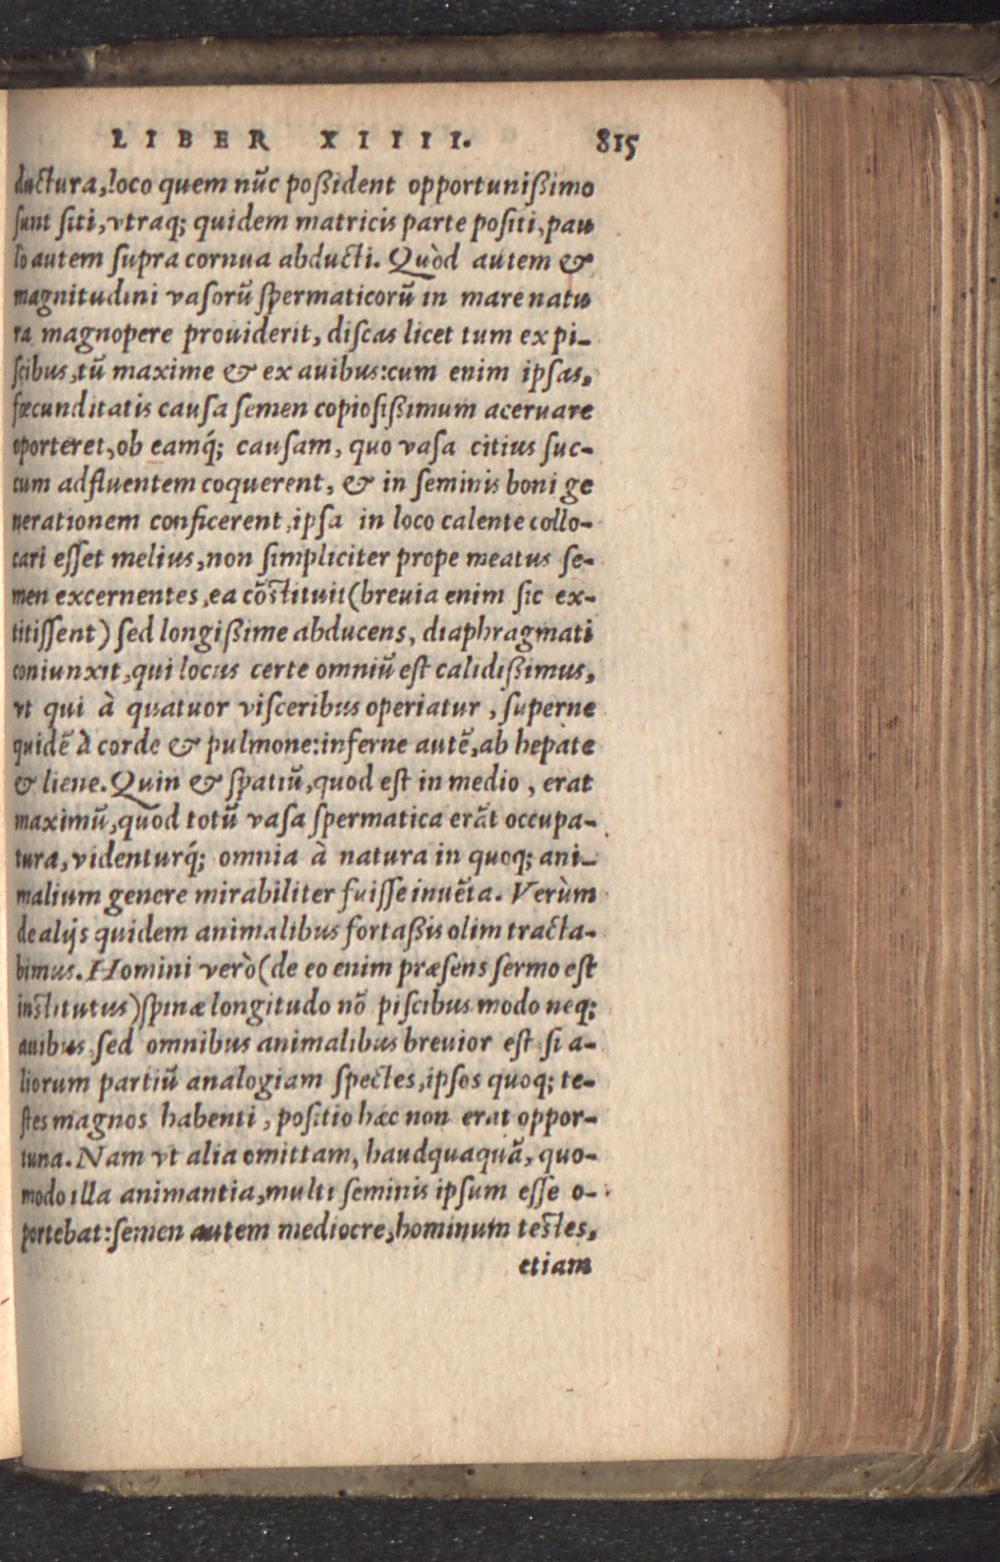 LIBER XIIII. 815
ductura, loco quem nũc poßident opportunißimo
sunt siti, vtraq; quidem matricis parte positi, pau
lò autem supra cornua abducti. Quòd autem &
magnitudini vasorũ spermaticorũ in mare natu
ra magnopere prouiderit, discas licet tum ex pi-
scibus, tũ maxime & ex auibus: cum enim ipsas,
fœcunditatis causa semen copiosißimum aceruare
oporteret, ob eamq́; causam, quo vasa citius suc-
cum adfluentem coquerent, & in seminis boni ge
nerationem conficerent, ipsa in loco calente collo-
cari esset melius, non simpliciter prope meatus se-
men excernentes, ea cõstituit (breuia enim sic ex-
titissent) sed longißime abducens, diaphragmati
coniunxit, qui locus certe omniũ est calidißimus,
vt qui à quatuor visceribus operiatur, superne
quidẽ à corde & pulmone: inferne autẽ, ab hepate
& liene. Quin & spatiũ, quod est in medio, erat
maximũ, quòd totũ vasa spermatica erãt occupa-
tura, videnturq́; omnia à natura in quoq; ani-
malium genere mirabiliter fuisse inuẽta. Verùm
de alijs quidem animalibus fortaßis olim tracta-
bimus. Homini verò (de eo enim præsens sermo est
institutus) spinæ longitudo nõ piscibus modo neq;
auibus sed omnibus animalibus breuior est si a-
liorum partiũ analogiam spectes, ipsos quoq; te-
stes magnos habenti, positio hæc non erat oppor-
tuna. Nam vt alia omittam, haudquaquã, quo-
modo illa animantia, multi seminis ipsum esse o-
portebat: semen autem mediocre, hominum testes,
etiam